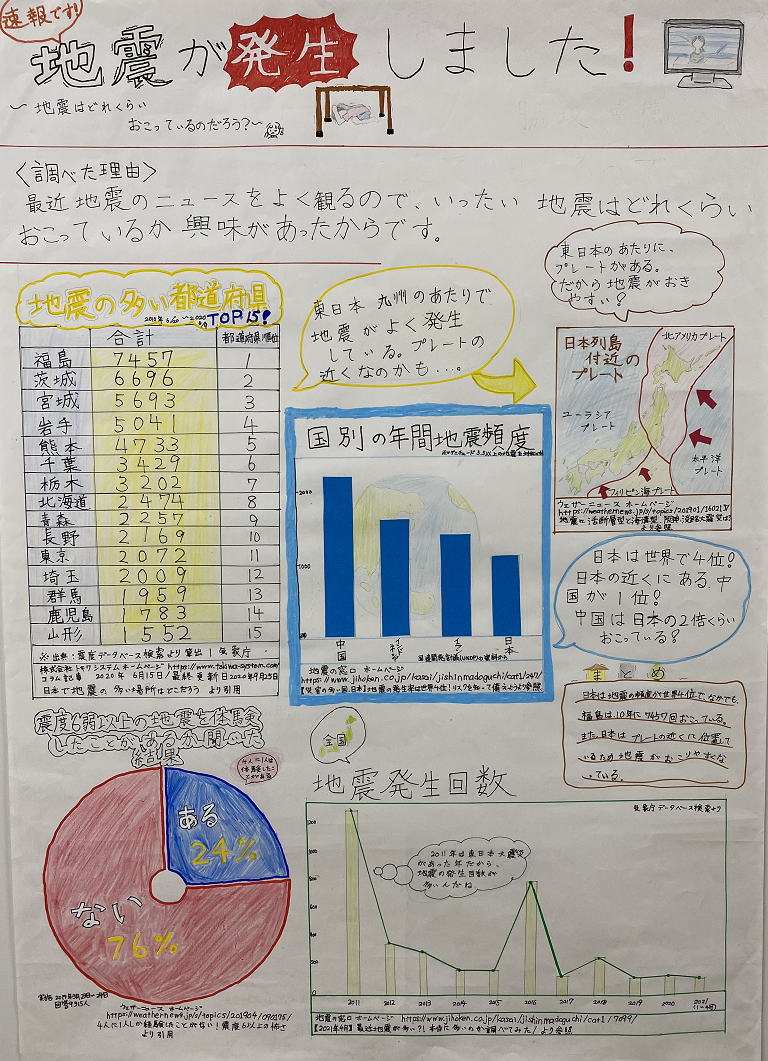 速報です!
地震が発生しました!
〜地震はどれくらい
おこっているのだろう?〜
〈調べた理由〉
最近地震のニュースをよく観るので、いったい 地震はどれくらい
おこっているか興味があったからです。
地震の多い都道府県
TOP15!
合計 都道府県順位
福島 7457 1
茨城 6696 2
宮城 5693 3
岩手 5041 4
熊本 4733 5
千葉 3429 6
栃木 3202 7
北海道 2474 8
青森 2257 9
長野 2169 10
東京 2072 11
埼玉 2009 12
群馬 1959 13
鹿児島 1783 14
山形 1552 15
※出典:震度データベース検索より算出|気象庁
株式会社トキワシステムホームページ https://www.tokiwa-system.com
コラム記事 2020年6月15日/最終更新日2020年9月25日
日本で地震の多い場所はどこだろう より引用
東日本 九州のあたりで
地震がよく発生
している。プレートの
近くなのかも…。
東日本のあたりに、
プレートがある。
だから地震がおき
やすい?
日本列島
付近の
プレート
北アメリカプレート
ユーラシア
プレート
太平洋
プレート
フィリピン海プレート
ウェザーニュース ホームページ
https://weathernews.jp/s/topics/201901/160215/
より参照
国別の年間地震頻度
2000
1000
中国
インドネシア
イラン
日本
国連開発計画(UNDP)の資料から
地震の窓口 ホームページ
https://www.jihoken.co.jp/kasai/jishinmadoguchi/cat1/247/
【災害の多い国、日本】地震の発生率は世界4位!リスクを知って備えようより参照
日本は世界で4位!
日本の近くにある中
国が1位!
中国は日本の2倍くらい
おこっている?
まとめ
日本は地震の頻度が世界4位で、なかでも、
福島は10年に7457回おこっている。
また、日本はプレートの近くに位置して
いるため地震がおこりやすくな
っている。
震度6弱以上の地震を体験
したことがあるか聞いた
結果
4人に1人は
体験したこ
とがある
ある
24%
ない
76%
ウェザーニュース ホームページ
https://weathernews.jp/s/topics/201904/090195/
4人に1人しか経験したことがない!震度6以上の怖さ
より引用
全国
地震発生回数
気象庁データベース検索より
2011年は東日本大震災
があった年だから、
地震の発生回数が
多いんだね
2011 2012 2013 2014 2015 2016 2017 2018 2019 2020 2021
(1~4月)
地震の窓口 ホームページ https://www.jihoken.co.jp/kasai/jishinmadoguchi/cat1/7099/
【2021年4月】最近地震が多い?!本当に多いのか調べてみた! より参照